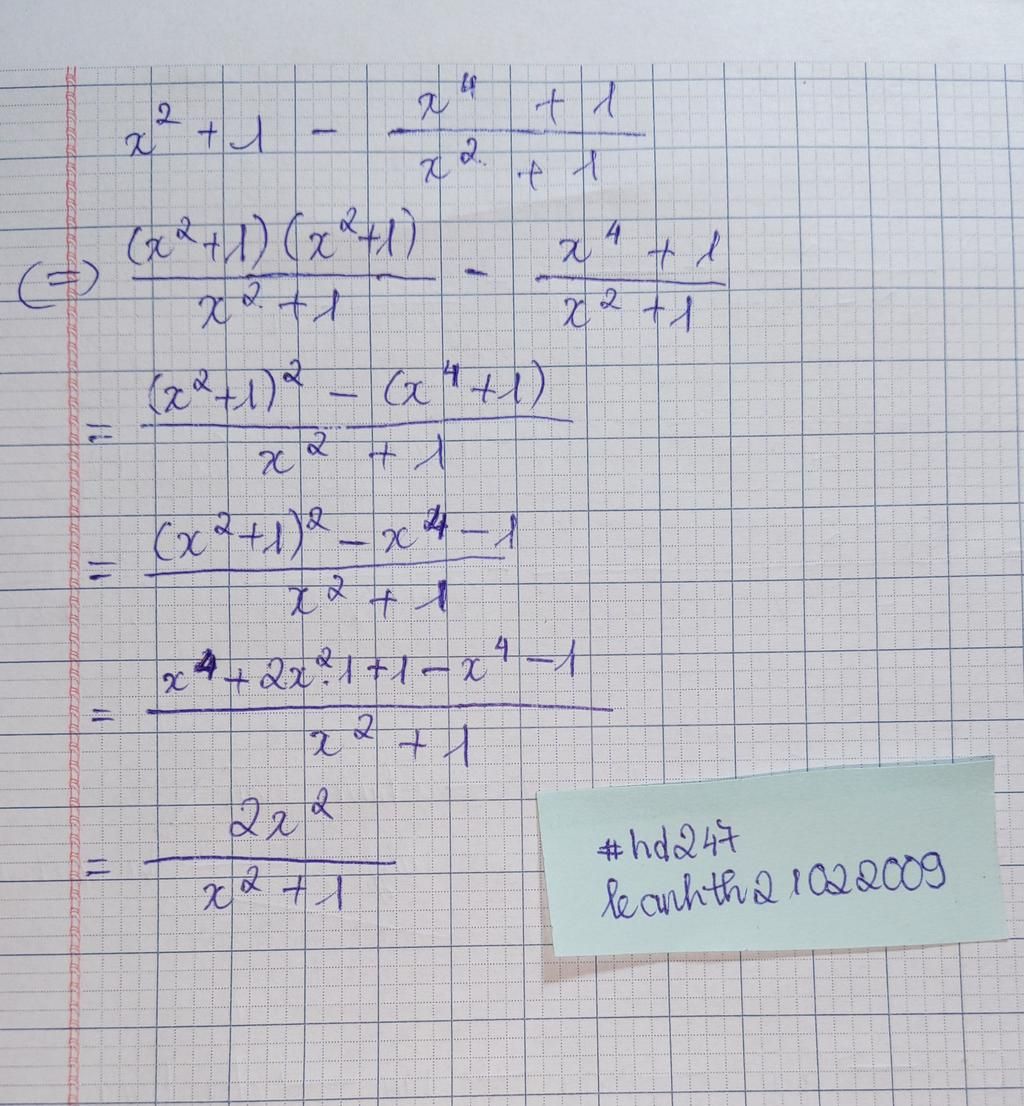 x² + 1 - (x⁴ + 1)/(x² + 1)
(=) ((x²+1)(x²+1))/(x²+1) - (x⁴+1)/(x²+1)
= ((x²+1)² - (x⁴+1))/(x² + 1)
= ((x²+1)² - x⁴ - 1)/(x² + 1)
= (x⁴ + 2x².1 + 1 - x⁴ - 1)/(x² + 1)
= 2x²/(x² + 1)
#hd247
leanhth21022009